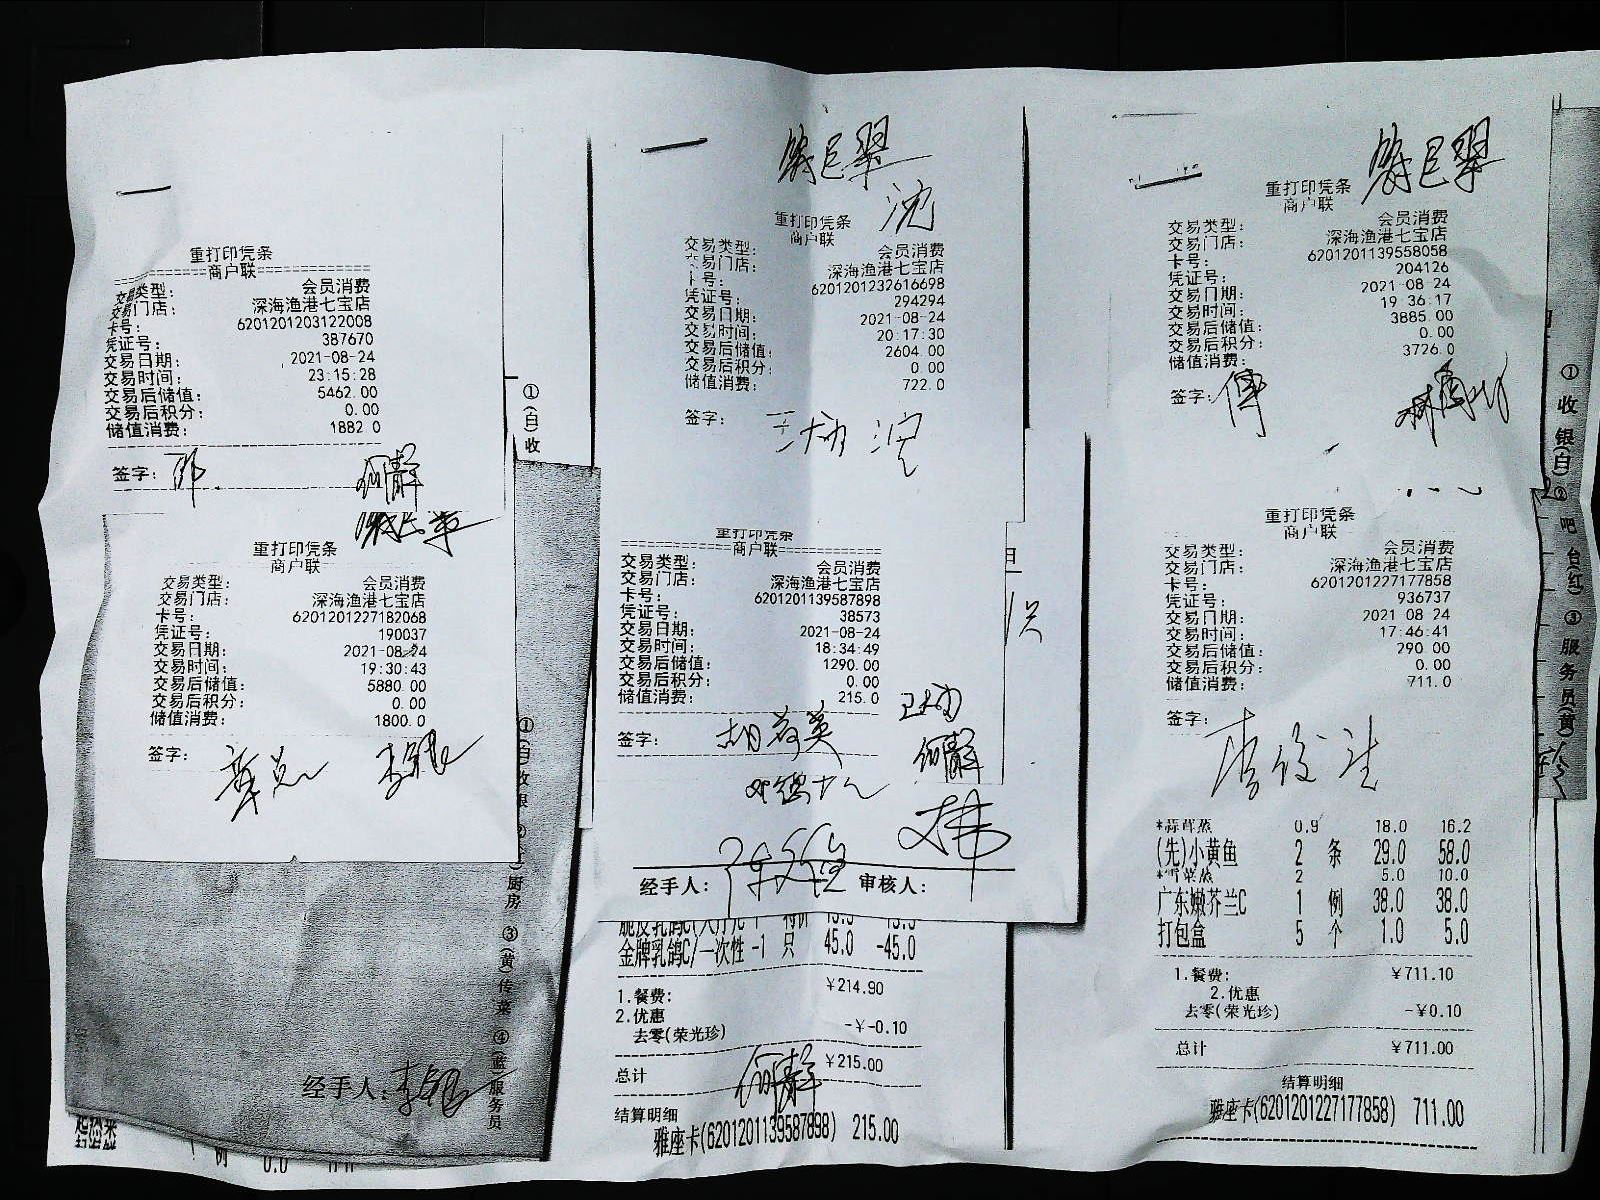 重打印凭条
商户联
交易类型： 会员消费
交易门店： 深海渔港七宝店
卡号： 6201201203122008
凭证号： 387670
交易日期： 2021-08-24
交易时间： 23:15:28
交易后储值： 5462.00
交易后积分： 0.00
储值消费： 1882.0
签字：
何静
重打印凭条
商户联
交易类型： 会员消费
交易门店： 深海渔港七宝店
卡号： 6201201227182068
凭证号： 190037
交易日期： 2021-08-24
交易时间： 19:30:43
交易后储值： 5880.00
交易后积分： 0.00
储值消费： 1800.0
签字：
经手人：
①(白)收
①(白)收银②
厨房③(黄)传菜④(蓝)服务员
沈
重打印凭条
商户联
交易类型： 会员消费
交易门店： 深海渔港七宝店
卡号： 6201201232616698
凭证号： 294294
交易日期： 2021-08-24
交易时间： 20:17:30
交易后储值： 2604.00
交易后积分： 0.00
储值消费： 722.0
签字：
重打印凭条
商户联
交易类型： 会员消费
交易门店： 深海渔港七宝店
卡号： 6201201139587898
凭证号： 38573
交易日期： 2021-08-24
交易时间： 18:34:49
交易后储值： 1290.00
交易后积分： 0.00
储值消费： 215.0
签字： 胡荷英
何静
经手人： 审核人：
金牌乳鸽C/一次性 -1 只 45.0 -45.0
1.餐费： ￥214.90
2.优惠
去零(荣光珍) -￥-0.10
总计 ￥215.00
何静
结算明细
雅座卡(6201201139587898) 215.00
重打印凭条
商户联
交易类型： 会员消费
交易门店： 深海渔港七宝店
卡号： 6201201139558058
凭证号： 204126
交易日期： 2021-08-24
交易时间： 19:36:17
交易后储值： 3885.00
交易后积分： 0.00
储值消费： 3726.0
签字： 傅
重打印凭条
商户联
交易类型： 会员消费
交易门店： 深海渔港七宝店
卡号： 6201201227177858
凭证号： 936737
交易日期： 2021 08 24
交易时间： 17:46:41
交易后储值： 290.00
交易后积分： 0.00
储值消费： 711.0
签字：
*蒜茸蒸 0.9 18.0 16.2
(先)小黄鱼 2 条 29.0 58.0
*雪菜蒸 2 5.0 10.0
广东嫩芥兰C 1 例 38.0 38.0
打包盒 5 个 1.0 5.0
1.餐费： ￥711.10
2.优惠
去零(荣光珍) -￥0.10
总计 ￥711.00
结算明细
雅座卡(6201201227177858) 711.00
①收银(白)②吧台(红)③服务员(黄)